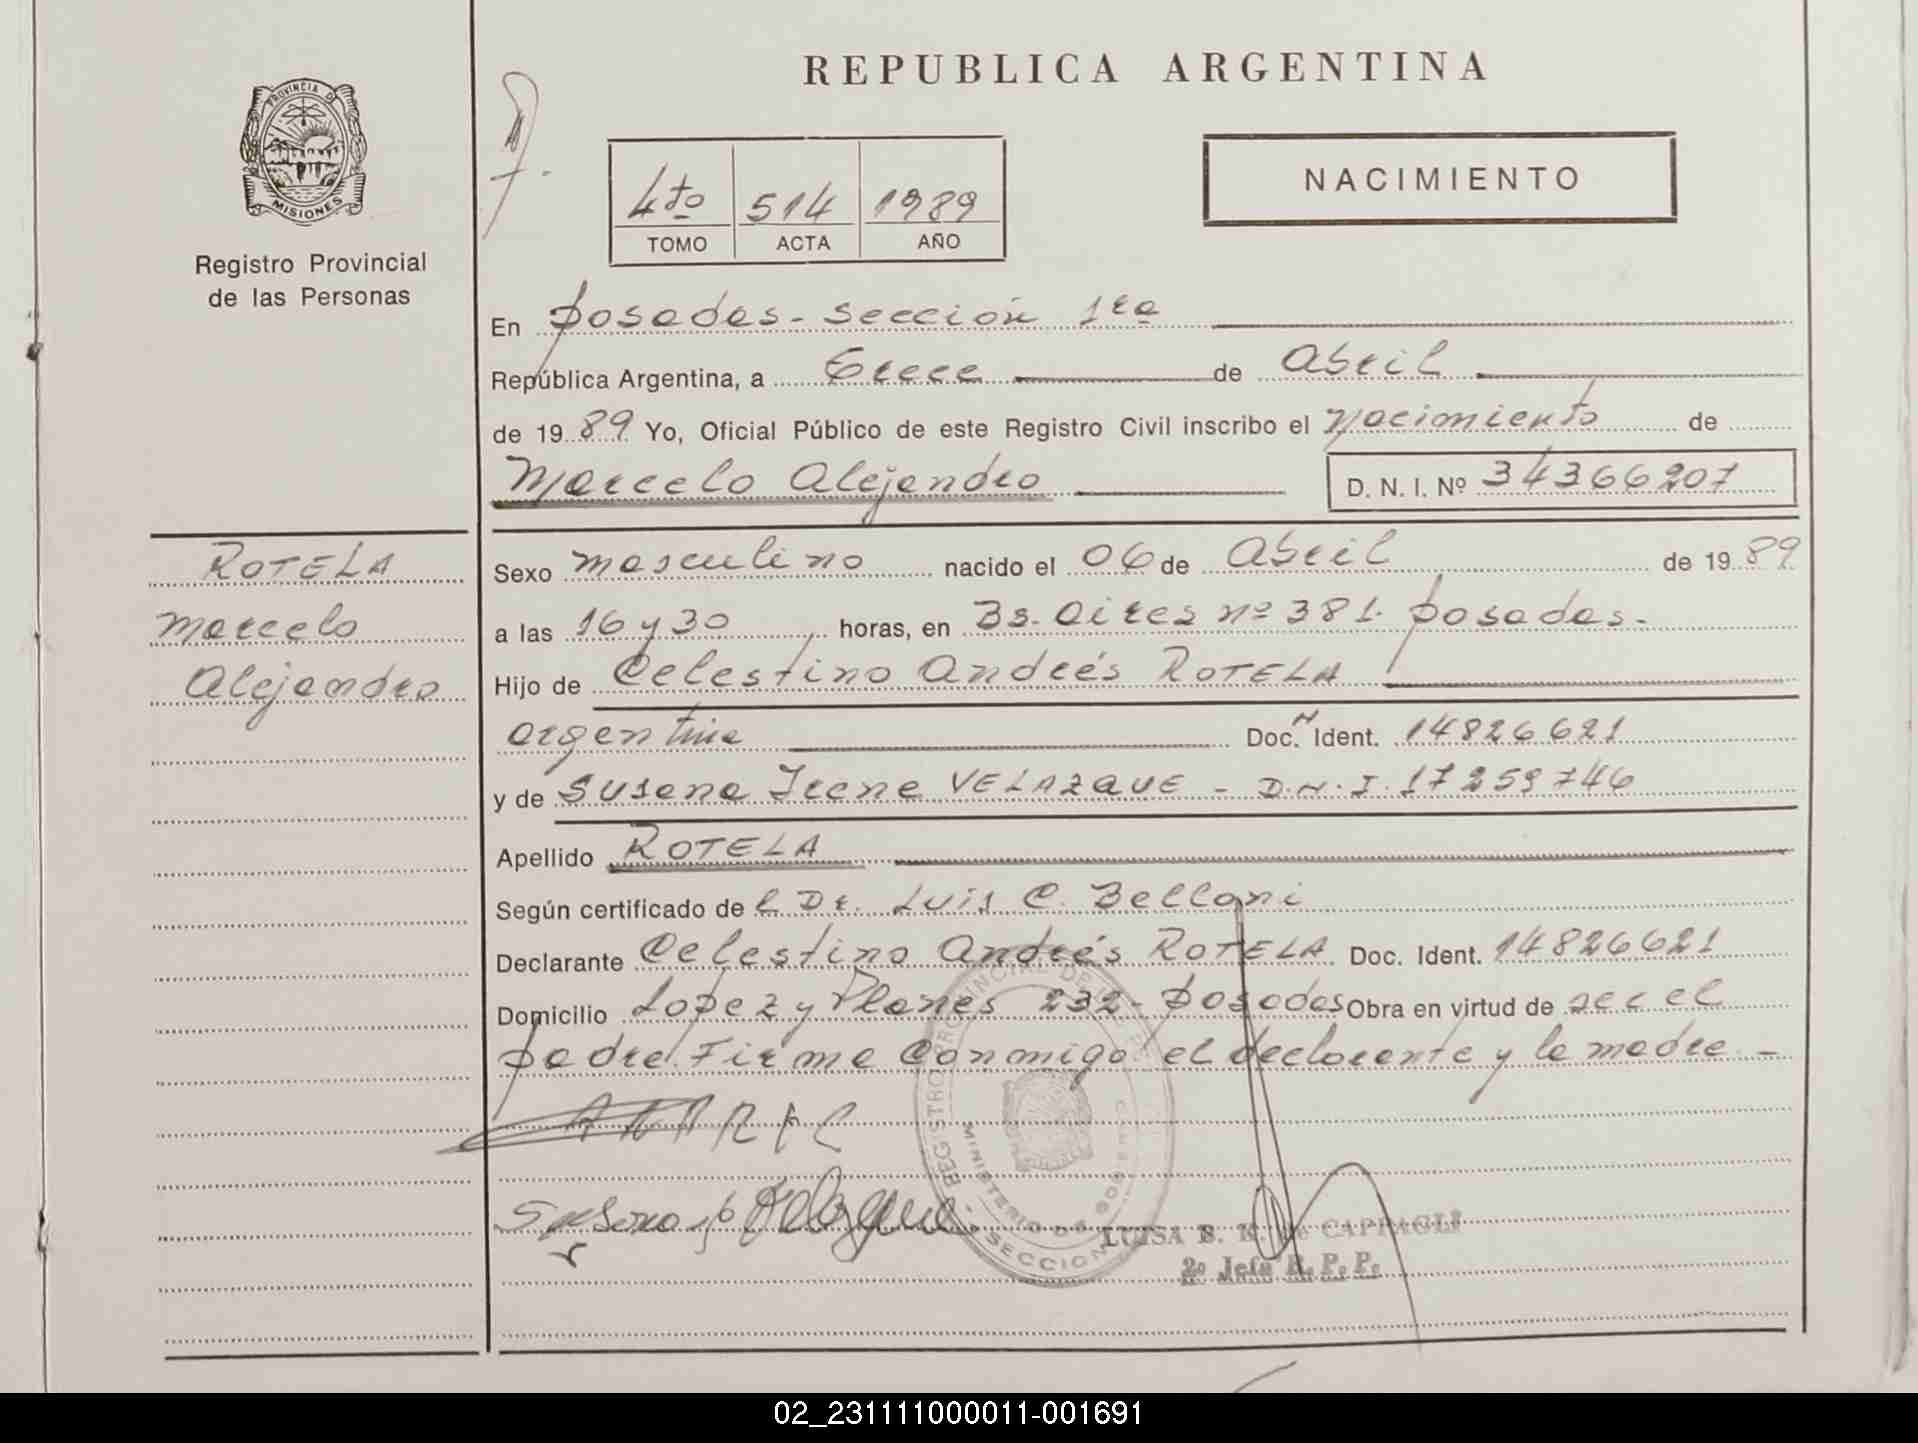 REPUBLICA ARGENTINA
PROVINCIA DE
MISIONES
Registro Provincial
de las Personas
4to 514 1989
TOMO ACTA AÑO
NACIMIENTO
En Posadas - Sección 1ra
República Argentina, a trece de Abril
de 1989 Yo, Oficial Público de este Registro Civil inscribo el nacimiento de
Marcelo Alejandro D. N. I. Nº 34366207
ROTELA
Marcelo
Alejandro
Sexo masculino nacido el 06 de Abril de 1989
a las 16 y 30 horas, en Bs. Aires nº 381. Posadas.
Hijo de Celestino Andrés ROTELA
argentina Doc. N Ident. 14826621
y de Susana Irene VELAZQUE - D.N.I. 17259746
Apellido ROTELA
Según certificado del Dr. Luis C. Belloni
Declarante Celestino Andrés ROTELA Doc. Ident. 14826621
Domicilio Lopez y Planes 232 - Posadas Obra en virtud de ser el
padre. Firma conmigo el declarante y la madre. -
Susana Velazque
LUISA B. K. de CAPPAGLI
2º Jefe R. P. P.
02_231111000011-001691